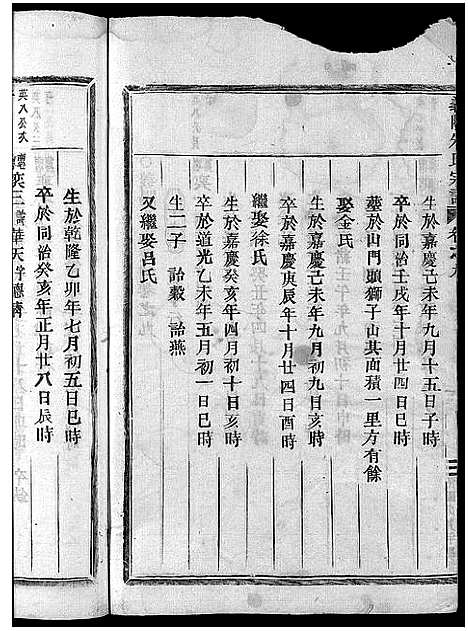 氏宗譜
生於嘉慶己未年九月十五日子時
卒於同治壬戌年十月廿四日巳時
塟於山門頭獅子山其面積一里方有餘
娶金氏
生於嘉慶己未年九月初九日亥時
卒於嘉慶庚辰年十月廿四日酉時
繼娶徐氏
生於嘉慶癸亥年四月初十日亥時
卒於道光乙未年五月初一日巳時
生二子 詒穀 詒燕
又繼娶呂氏
生於乾隆乙卯年七月初五日巳時
卒於同治癸亥年正月廿八日辰時
英三 諱華天字聽濟
英八公次